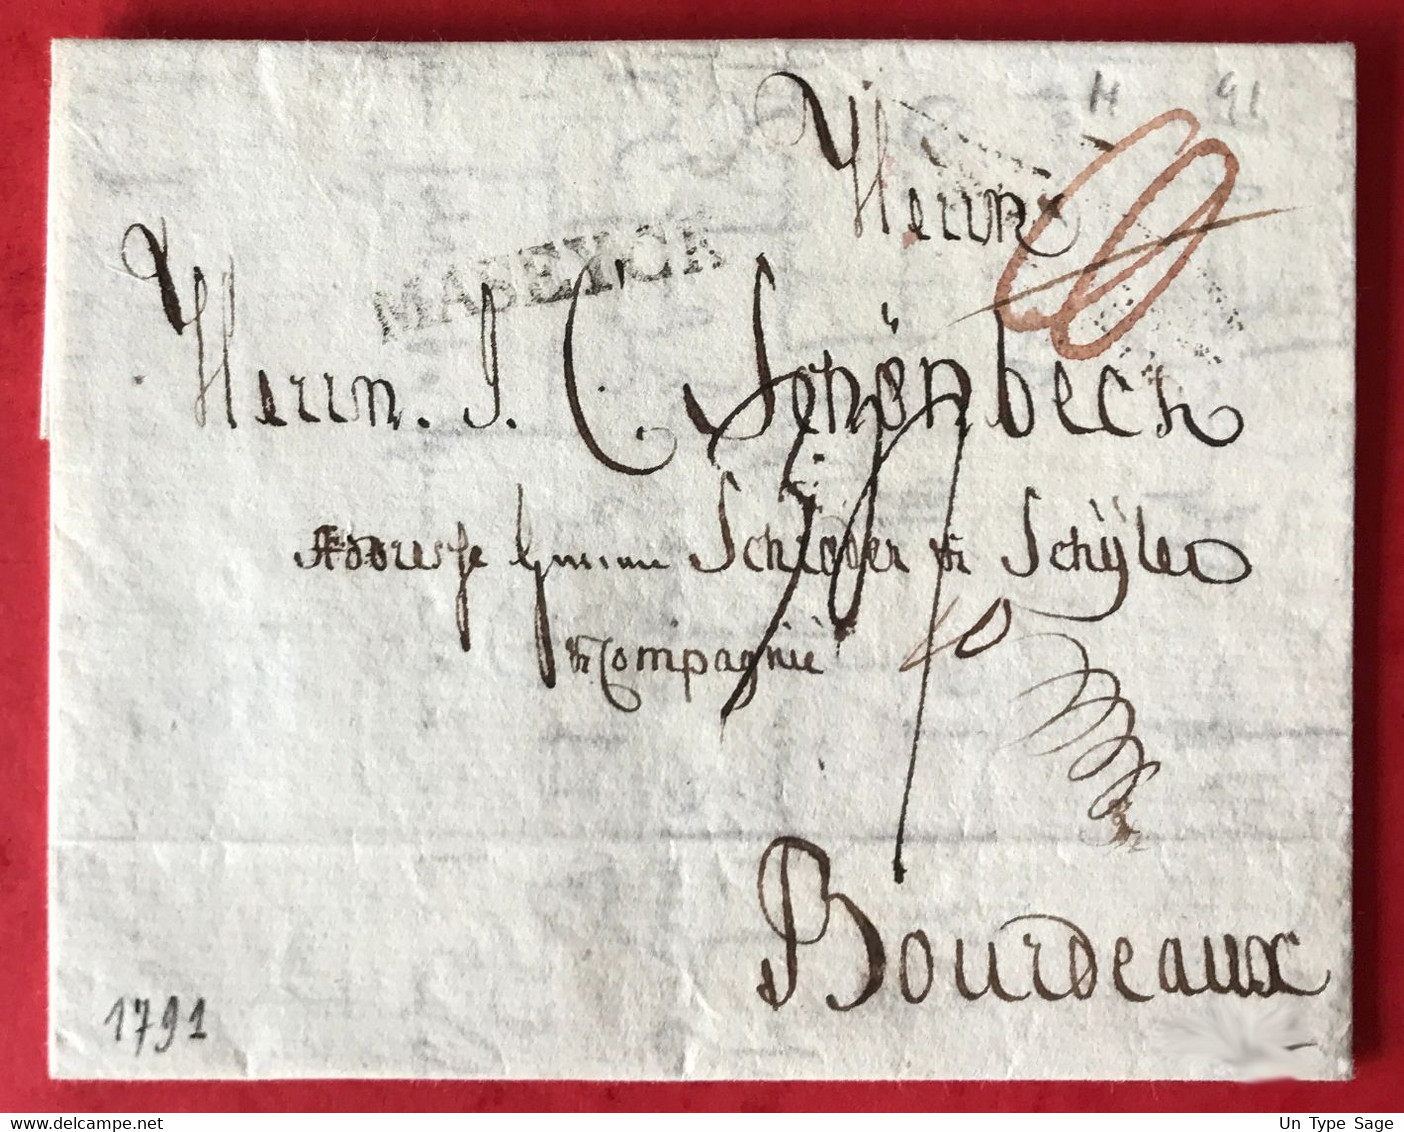 H 91
Herrn
MASEYCK
Herrn. J. C. Schönbeck
Addresse Herren Schröder & Schÿler
& Compagnie
Bourdeaux
1791
Un Type Sage